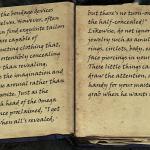 the bondage devices
themselves. However, often
can find exquisite tailors
are capable of
clothing that,
ostensibly concealing
than revealing,
the imagination and
sensual rather than
Just as the
head of the Image
once proclaimed, "I get
when all's revealed,"
but there's no turn-on
the half-concealed!"
Likewise, do not ignore
jewelry such as anklets
rings, circlets, body, and
face piercings in your
These little things can
draw the attention, and
handy for your master
grab when he wants